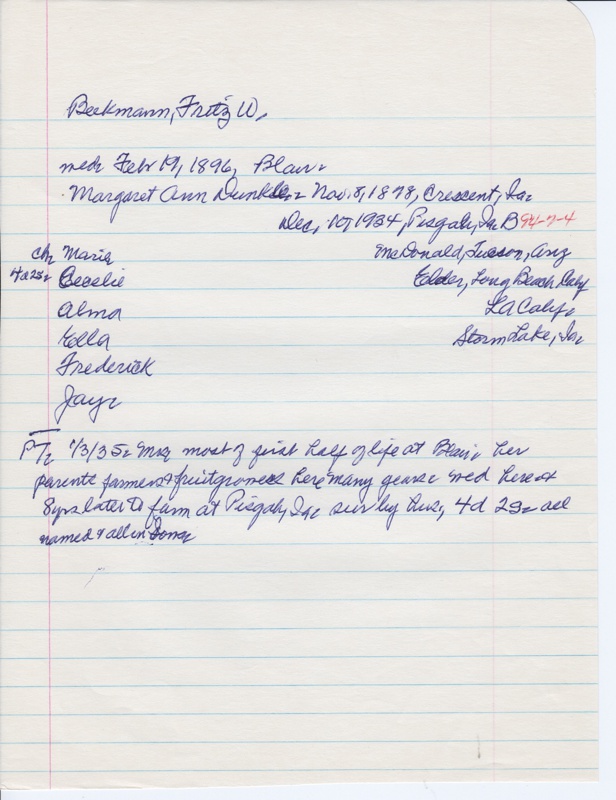 Beckmann, Fritz W.
med. Feb 19, 1896, Blair.
Margaret Ann Dunkle. Nov. 8, 1878, Crescent, Ia.
Dec. 1934, Pisgah, Ia B 94-7-4
ch. Marie McDonald, Tucson, Ariz
4d 2s. Cecelie Elder, Long Beach Calif
Alma LA Calif.
Ella Storm Lake, Ia.
Frederick
Jay.
PT. 1/3/35. Mrs most of first half of life at Blair. her
parents farmers & fruitgrowers here many years. wed here &
8 yrs later to farm at Pisgah, Ia. surv by hus, 4d 2s. all
named & all in